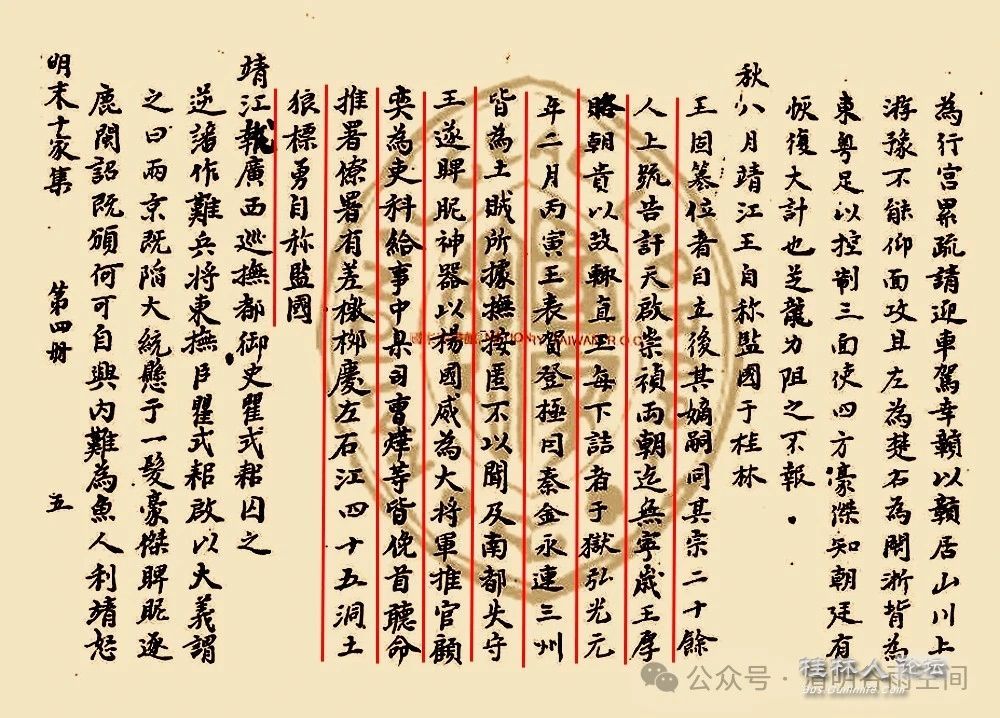 為行宮累疏請迎車駕幸贛以贛居山川上
游豫不能仰面攻且左為楚右為閩浙皆為
東粤足以控制三面使四方豪傑知朝廷有
恢復大計也芝龍力阻之不報
秋八月靖江王自称監國于桂林
王固篡位者自立後其嫡嗣同其宗二十餘
人上疏告訐天啟崇禎兩朝迄無寧歲王厚
賂朝貴以故輙直王每下詰者于獄弘光元
年二月丙寅王表賀登極曰秦金永連三州
皆為土賊所據撫按匿不以聞及南都失守
王遂睥睨神器以楊國威為大将軍推官顧
奕為吏科給事中臬司曹燁等皆俛首聽命
推署僚署有差檄柳慶左右江四十五洞土
狼標勇自称監國
靖江執廣西巡撫都御史瞿式耜囚之
逆謀作難兵將東撫臣瞿式耜啟以大義謂
之曰兩京既陷大統懸于一髮豪傑睥睨逐
鹿閩詔既頒何可自興內難為魚人利靖怒
明末十家集 第四册 五
公众号
空间
桂林人论坛